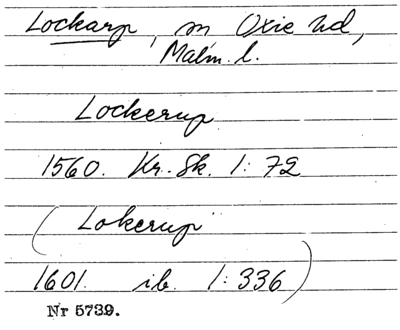 Lockarp, sn Oxie hd,
Malm. l.
Lockerup
1560. Kr. Sk. 1: 72
(Lokerup
1601. ib. 1: 336)
Nr 5739.